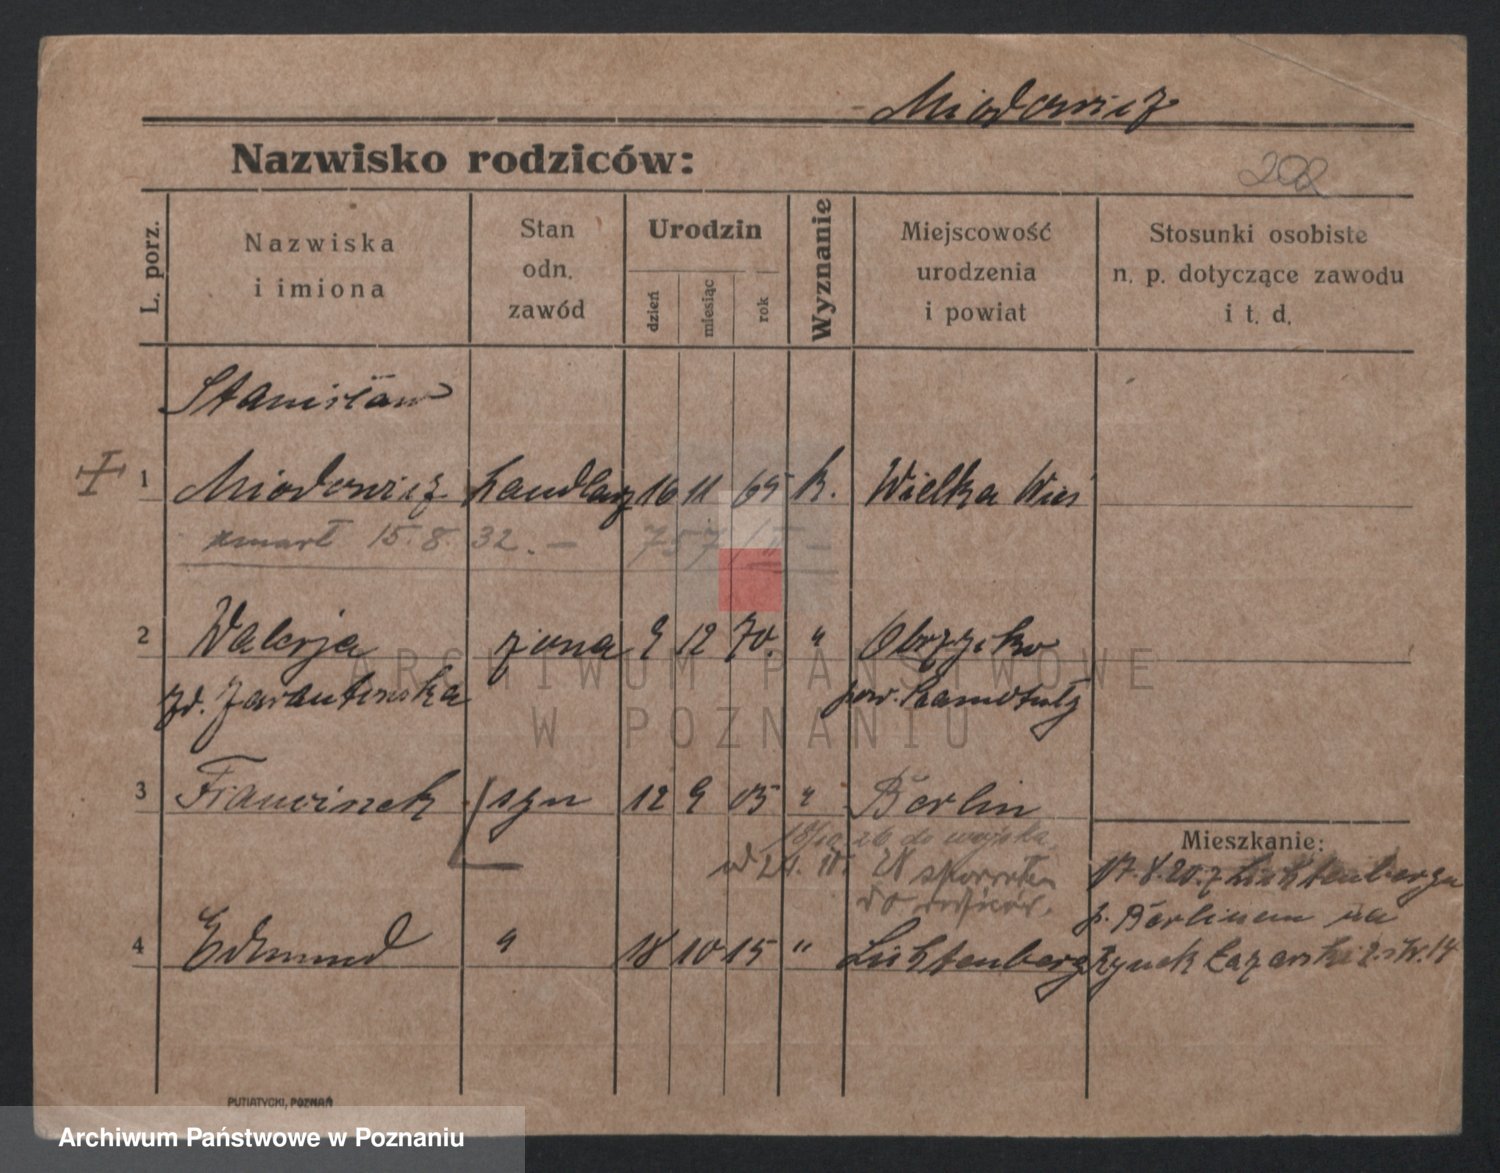 Miodowicz
Nazwisko rodziców:
202
L. porz.
Nazwiska
i imiona
Stan
odn.
zawód
Urodzin
dzień
miesiąc
rok
Wyznanie
Miejscowość
urodzenia
i powiat
Stosunki osobiste
n. p. dotyczące zawodu
i t. d.
Stanisław
1 Miodowicz handlarz 16 11 65 k. Wielka Wieś
zmarł 15.8.32. — 757/II —
2 Walerja żona 9 12 70. " Obrzycko
zd. pow. Szamotuły
ARCHIWUM PAŃSTWOWE
W POZNANIU
3 Franciszek syn 12 9 05 " Berlin
18/10 26 do wojska
od
do rodziców.
Mieszkanie:
17.8.20. z Lichtenberga
p. Berlinem na
4 Edmund " 18 10 15 " Lichtenberg Rynek Łazarski 2. 14
PUTIATYCKI, POZNAŃ
Archiwum Państwowe w Poznaniu